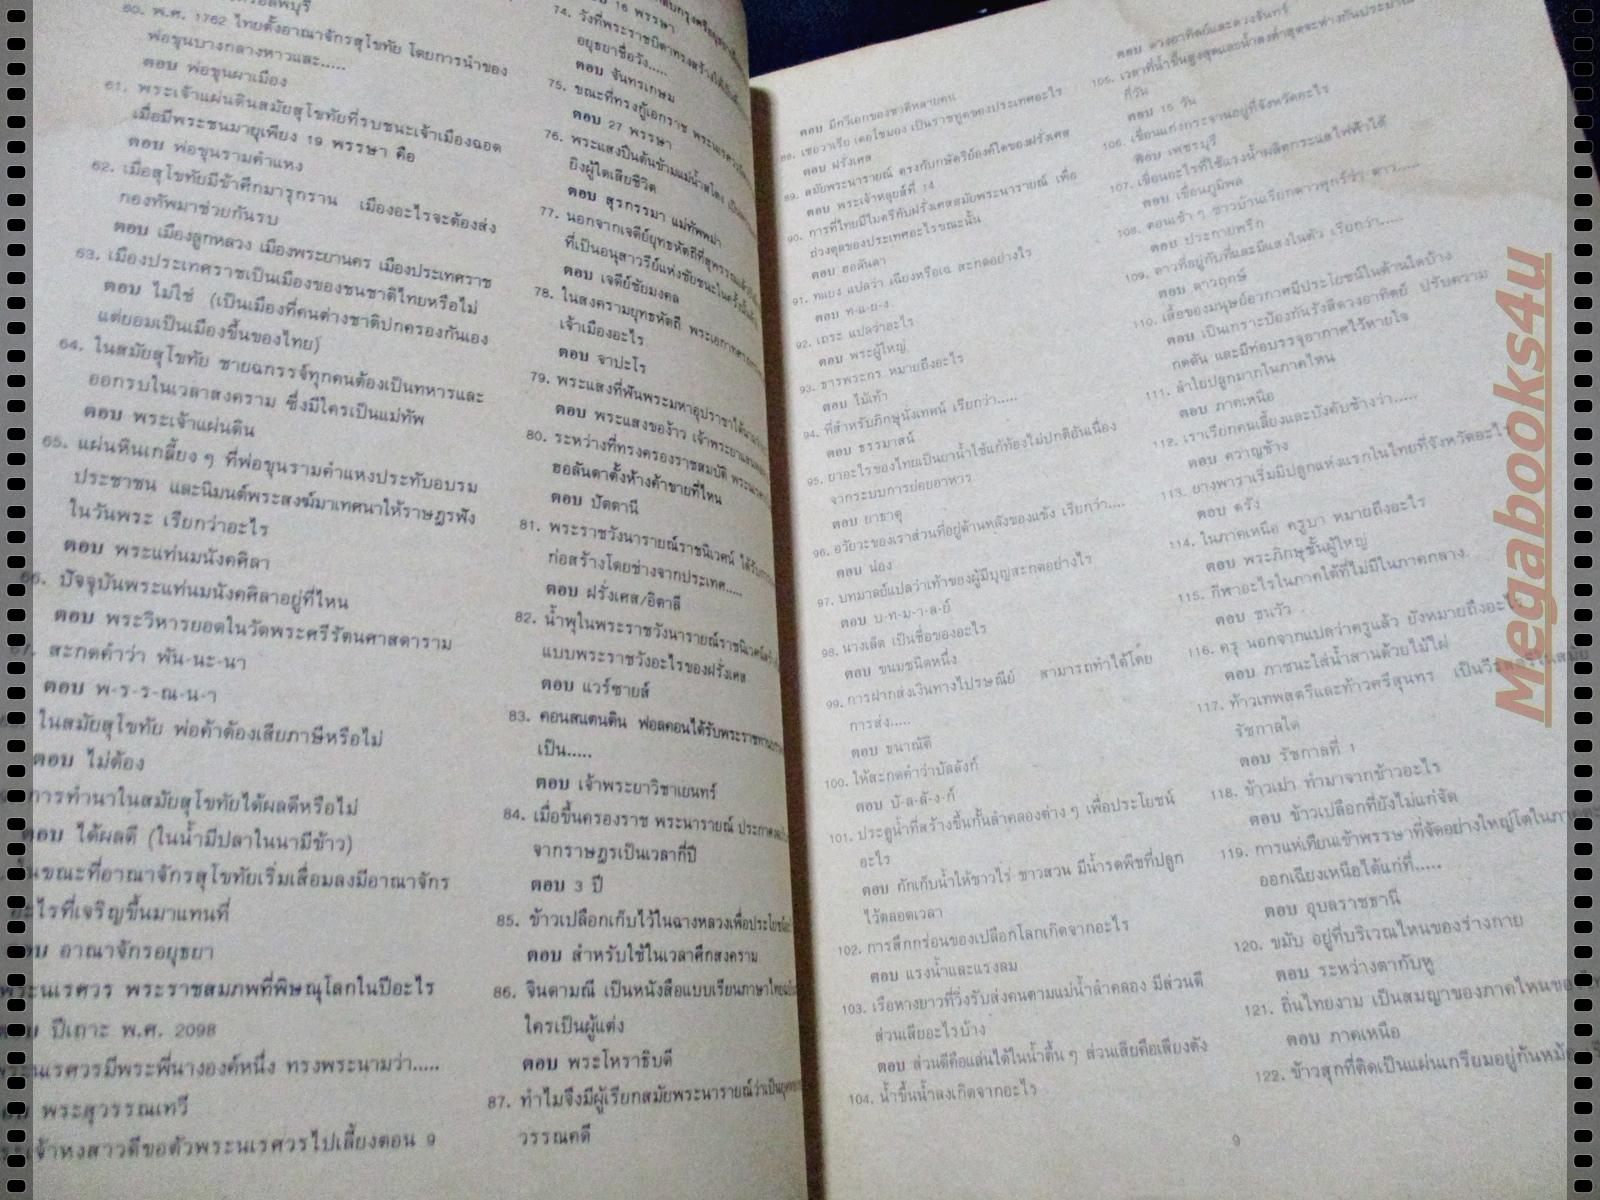 60. พ.ศ. 1762 ไทยตั้งอาณาจักรสุโขทัย โดยการนำของ
พ่อขุนบางกลางหาวและ.....
ตอบ พ่อขุนผาเมือง
61. พระเจ้าแผ่นดินสมัยสุโขทัยที่รบชนะเจ้าเมืองฉอด
เมื่อมีพระชนมายุเพียง 19 พรรษา คือ
ตอบ พ่อขุนรามคำแหง
62. เมื่อสุโขทัยมีข้าศึกมารุกราน เมืองอะไรจะต้องส่ง
กองทัพมาช่วยกันรบ
ตอบ เมืองลูกหลวง เมืองพระยานคร เมืองประเทศราช
63. เมืองประเทศราชเป็นเมืองของชนชาติไทยหรือไม่
ตอบ ไม่ใช่ (เป็นเมืองที่คนต่างชาติปกครองกันเอง
แต่ยอมเป็นเมืองขึ้นของไทย)
64. ในสมัยสุโขทัย ชายฉกรรจ์ทุกคนต้องเป็นทหารและ
ออกรบในเวลาสงคราม ซึ่งมีใครเป็นแม่ทัพ
ตอบ พระเจ้าแผ่นดิน
65. แผ่นหินเกลี้ยง ๆ ที่พ่อขุนรามคำแหงประทับอบรม
ประชาชน และนิมนต์พระสงฆ์มาเทศนาให้ราษฎรฟัง
ในวันพระ เรียกว่าอะไร
ตอบ พระแท่นมนังคศิลา
66. ปัจจุบันพระแท่นมนังคศิลาอยู่ที่ไหน
ตอบ พระวิหารยอดในวัดพระศรีรัตนศาสดาราม
สะกดคำว่า พัน-นะ-นา
ตอบ พ-ร-ร-ณ-น-า
ในสมัยสุโขทัย พ่อค้าต้องเสียภาษีหรือไม่
ตอบ ไม่ต้อง
การทำนาในสมัยสุโขทัยได้ผลดีหรือไม่
ตอบ ได้ผลดี (ในน้ำมีปลาในนามีข้าว)
ในขณะที่อาณาจักรสุโขทัยเริ่มเสื่อมลงมีอาณาจักร
อะไรที่เจริญขึ้นมาแทนที่
ตอบ อาณาจักรอยุธยา
พระนเรศวร พระราชสมภพที่พิษณุโลกในปีอะไร
ตอบ ปีเถาะ พ.ศ. 2098
พระนเรศวรมีพระพี่นางองค์หนึ่ง ทรงพระนามว่า.....
ตอบ พระสุวรรณเทวี
พระเจ้าหงสาวดีขอตัวพระนเรศวรไปเลี้ยงตอน 9
16 พรรษา
74. วังที่พระราชบิดาทรงสร้างให้
อยุธยาชื่อวัง.....
ตอบ จันทรเกษม
75. ขณะที่ทรงกู้เอกราช พระนเรศวร
ตอบ 27 พรรษา
76. พระแสงปืนต้นข้ามแม่น้ำสโตง
ยิงผู้ใดเสียชีวิต
ตอบ สุรกรรมา แม่ทัพพม่า
77. นอกจากเจดีย์ยุทธหัตถีที่สุพรรณ
ที่เป็นอนุสาวรีย์แห่งชัยชนะในครั้ง
ตอบ เจดีย์ชัยมงคล
78. ในสงครามยุทธหัตถี พระเอกาทศรถ
เจ้าเมืองอะไร
ตอบ จาปะโร
79. พระแสงที่ฟันพระมหาอุปราชาได้
ตอบ พระแสงของ้าว เจ้าพระยาแสนพล
80. ระหว่างที่ทรงครองราชสมบัติ พระนเรศวร
ฮอลันดาตั้งห้างค้าขายที่ไหน
ตอบ ปัตตานี
81. พระราชวังนารายณ์ราชนิเวศน์ ได้รับการ
ก่อสร้างโดยช่างจากประเทศ.....
ตอบ ฝรั่งเศส/อิตาลี
82. น้ำพุในพระราชวังนารายณ์ราชนิเวศน์
แบบพระราชวังอะไรของฝรั่งเศส
ตอบ แวร์ซายส์
83. คอนสแตนติน ฟอลคอนได้รับพระราชทาน
เป็น.....
ตอบ เจ้าพระยาวิชาเยนทร์
84. เมื่อขึ้นครองราช พระนารายณ์ ประกาศ
จากราษฎรเป็นเวลากี่ปี
ตอบ 3 ปี
85. ข้าวเปลือกเก็บไว้ในฉางหลวงเพื่อประโยชน์
ตอบ สำหรับใช้ในเวลาศึกสงคราม
86. จินดามณี เป็นหนังสือแบบเรียนภาษาไทย
ใครเป็นผู้แต่ง
ตอบ พระโหราธิบดี
87. ทำไมจึงมีผู้เรียกสมัยพระนารายณ์ว่าเป็น
วรรณคดี
ตอบ มีกวีเอกของชาติหลายคน
88. เชอวาเรีย เดอโชมอง เป็นราชทูตของประเทศอะไร
ตอบ ฝรั่งเศส
89. สมัยพระนารายณ์ ตรงกับกษัตริย์องค์ใดของฝรั่งเศส
ตอบ พระเจ้าหลุยส์ที่ 14
90. การที่ไทยมีไมตรีกับฝรั่งเศสสมัยพระนารายณ์ เพื่อ
ถ่วงดุลของประเทศอะไรขณะนั้น
ตอบ ฮอลันดา
91. ทแยง แปลว่า เฉียงหรือเฉ สะกดอย่างไร
ตอบ ท-แ-ย-ง.
92. เถระ แปลว่าอะไร
ตอบ พระผู้ใหญ่
93. ธารพระกร หมายถึงอะไร
ตอบ ไม้เท้า
94. ที่สำหรับภิกษุนั่งเทศน์ เรียกว่า.....
ตอบ ธรรมาสน์
95. ยาอะไรของไทยเป็นยาน้ำใช้แก้ท้องไม่ปกติอันเนื่อง
จากระบบการย่อยอาหาร
ตอบ ยาธาตุ
96. อวัยวะของเราส่วนที่อยู่ด้านหลังของแข้ง เรียกว่า....
ตอบ น่อง
97. บทมาลย์แปลว่าเท้าของผู้มีบุญสะกดอย่างไร
ตอบ บ-ท-ม-า-ล-ย์
98. นางเล็ด เป็นชื่อของอะไร
ตอบ ขนมชนิดหนึ่ง
99. การฝากส่งเงินทางไปรษณีย์ สามารถทำได้โดย
การส่ง.....
ตอบ ธนาณัติ
100. ให้สะกดคำว่าบัลลังก์
ตอบ บั-ล-ลั-ง-ก์
101. ประตูน้ำที่สร้างขึ้นกั้นลำคลองต่าง ๆ เพื่อประโยชน์
อะไร
ตอบ กักเก็บน้ำให้ชาวไร่ ชาวสวน มีน้ำรดพืชที่ปลูก
ไว้ตลอดเวลา
102. การสึกกร่อนของเปลือกโลกเกิดจากอะไร
ตอบ แรงน้ำและแรงลม
103. เรือหางยาวที่วิ่งรับส่งคนตามแม่น้ำลำคลอง มีส่วนดี
ส่วนเสียอะไรบ้าง
ตอบ ส่วนดีคือแล่นได้ในน้ำตื้น ๆ ส่วนเสียคือเสียงดัง
104. น้ำขึ้นน้ำลงเกิดจากอะไร
ตอบ ดวงอาทิตย์และดวงจันทร์
105. เวลาที่น้ำขึ้นสูงสุดและน้ำลงต่ำสุดจะห่างกันประมาณ
กี่วัน
ตอบ 15 วัน
106. เขื่อนแก่งกระจานอยู่ที่จังหวัดอะไร
ตอบ เพชรบุรี
107. เขื่อนอะไรที่ใช้แรงน้ำผลิตกระแสไฟฟ้าได้
ตอบ เขื่อนภูมิพล
108. ตอนเช้า ๆ ชาวบ้านเรียกดาวศุกร์ว่า ดาว.....
ตอบ ประกายพรึก
109. ดาวที่อยู่กับที่และมีแสงในตัว เรียกว่า.....
ตอบ ดาวฤกษ์
110. เสื้อของมนุษย์อวกาศมีประโยชน์ในด้านใดบ้าง
ตอบ เป็นเกราะป้องกันรังสีดวงอาทิตย์ ปรับความ
กดดัน และมีท่อบรรจุอากาศไว้หายใจ
111. ลำไยปลูกมากในภาคไหน
ตอบ ภาคเหนือ
112. เราเรียกคนเลี้ยงและบังคับช้างว่า.....
ตอบ ควาญช้าง
113. ยางพาราเริ่มมีปลูกแห่งแรกในไทยที่จังหวัดอะไร
ตอบ ตรัง
114. ในภาคเหนือ ครูบา หมายถึงอะไร
ตอบ พระภิกษุชั้นผู้ใหญ่
115. กีฬาอะไรในภาคใต้ที่ไม่มีในภาคกลาง
ตอบ ชนวัว
116. ครุ นอกจากแปลว่าครูแล้ว ยังหมายถึงอะไร
ตอบ ภาชนะใส่น้ำสานด้วยไม้ไผ่
117. ท้าวเทพสตรีและท้าวศรีสุนทร เป็นวีรสตรีในสมัย
รัชกาลใด
ตอบ รัชกาลที่ 1
118. ข้าวเม่า ทำมาจากข้าวอะไร
ตอบ ข้าวเปลือกที่ยังไม่แก่จัด
119. การแห่เทียนเข้าพรรษาที่จัดอย่างใหญ่โตในภาค
ออกเฉียงเหนือได้แก่ที่.....
ตอบ อุบลราชธานี
120. ขมับ อยู่ที่บริเวณไหนของร่างกาย
ตอบ ระหว่างตากับหู
121. ถิ่นไทยงาม เป็นสมญาของภาคไหนของไทย
ตอบ ภาคเหนือ
122. ข้าวสุกที่ติดเป็นแผ่นเกรียมอยู่ก้นหม้อ
9
Megabooks4u